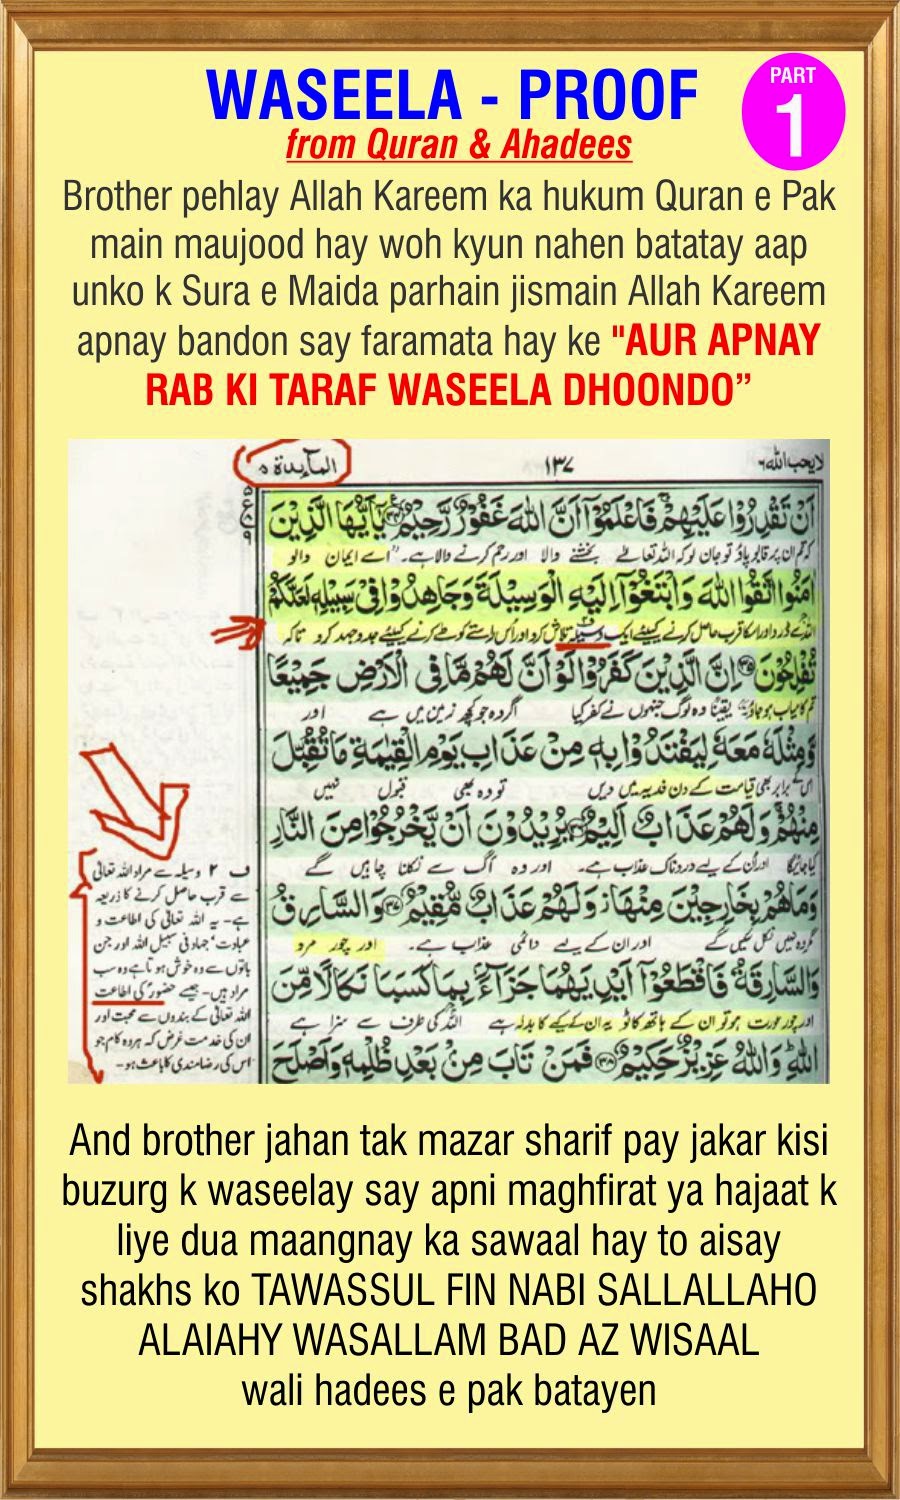 WASEELA - PROOF
PART
1
from Quran & Ahadees
Brother pehlay Allah Kareem ka hukum Quran e Pak
main maujood hay woh kyun nahen batatay aap
unko k Sura e Maida parhain jismain Allah Kareem
apnay bandon say faramata hay ke "AUR APNAY
RAB KI TARAF WASEELA DHOONDO”
لا یحب اللہ ۶
۱۳۷
المآىِٕدة ۵
اَنْ تَقْدِرُوْا عَلَيْهِمْ ۚ فَاعْلَمُوْۤا اَنَّ اللّٰهَ غَفُوْرٌ رَّحِيْمٌ ۠ يٰۤاَيُّهَا الَّذِيْنَ
کہ تم ان پر قابو پاؤ تو جان لو کہ اللہ تعالےٰ بخشنے والا اور رحم کرنے والا ہے۔ اے ایمان والو
اٰمَنُوا اتَّقُوا اللّٰهَ وَ ابْتَغُوْۤا اِلَيْهِ الْوَسِيْلَةَ وَجَاهِدُوْا فِيْ سَبِيْلِهٖ لَعَلَّكُمْ
اللہ سے ڈرو اور اسکا قرب حاصل کرنے کیلئے ایک وسیلہ تلاش کرو اور اُس کے راستے کو طے کرنے کیلئے جدوجہد کرو تاکہ
تُفْلِحُوْنَ ۝ اِنَّ الَّذِيْنَ كَفَرُوْا لَوْ اَنَّ لَهُمْ مَّا فِي الْاَرْضِ جَمِيْعًا
تم کامیاب ہو جاؤ یقیناً وہ لوگ جنہوں نے کفر کیا اگر وہ جو کچھ زمین میں ہے اور
وَّمِثْلَهٗ مَعَهٗ لِيَفْتَدُوْا بِهٖ مِنْ عَذَابِ يَوْمِ الْقِيٰمَةِ مَا تُقُبِّلَ
اس کے برابر بھی قیامت کے دن فدیہ میں دیں تو وہ بھی قبول نہیں
مِنْهُمْ ۚ وَلَهُمْ عَذَابٌ اَلِيْمٌ ۝ يُرِيْدُوْنَ اَنْ يَّخْرُجُوْا مِنَ النَّارِ
کیا جائیگا اور اُن کے لیے دردناک عذاب ہے۔ اور وہ آگ سے نکلنا چاہیں گے
وَمَا هُمْ بِخٰرِجِيْنَ مِنْهَا ۡ وَلَهُمْ عَذَابٌ مُّقِيْمٌ ۝ وَالسَّارِقُ
مگر وہ نہیں نکل سکیں گے اور ان کے لیے دائمی عذاب ہے۔ اور چور مرد
وَالسَّارِقَةُ فَاقْطَعُوْۤا اَيْدِيَهُمَا جَزَآءًۢ بِمَا كَسَبَا نَكَالًا مِّنَ
اور چور عورت ہو تو ان کے ہاتھ کاٹو یہ ان کے کیے کا بدلہ ہے اللہ کی طرف سے سزا ہے
اللّٰهِ ؕ وَاللّٰهُ عَزِيْزٌ حَكِيْمٌ ۝ فَمَنْ تَابَ مِنْۢ بَعْدِ ظُلْمِهٖ وَاَصْلَحَ
ف ۲ وسیلہ سے مراد اللہ تعالیٰ
سے قرب حاصل کرنے کا ذریعہ
ہے۔ یہ اللہ تعالیٰ کی اطاعت و
عبادت، جہاد فی سبیل اللہ اور جن
باتوں سے وہ خوش ہوتا ہے وہ سب
مراد ہیں۔ جیسے حضورؐ کی اطاعت
اللہ تعالیٰ کے بندوں سے محبت اور
ان کی خدمت غرض کہ ہر وہ کام جو
اس کی رضامندی کا باعث ہو۔
And brother jahan tak mazar sharif pay jakar kisi
buzurg k waseelay say apni maghfirat ya hajaat k
liye dua maangnay ka sawaal hay to aisay
shakhs ko TAWASSUL FIN NABI SALLALLAHO
ALAIAHY WASALLAM BAD AZ WISAAL
wali hadees e pak batayen